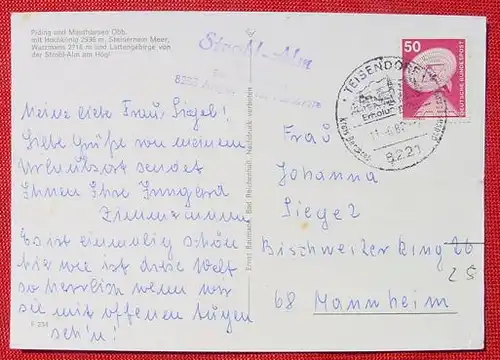 Piding und Mauthausen Obb.
mit Hochkönig 2938 m, Steinernem Meer,
Watzmann 2714 m und Lattengebirge von
der Strobl-Alm am Högl
Strobl-Alm
50
DEUTSCHE BUNDESPOST
TEISENDORF
8221
Meine liebe Frau Siegel!
Liebe Grüße von meinem
Urlaubsort sendet
Ihnen Ihre Irmgard
Zimmermann
Es ist einmalig schön
hie wie ist diese Welt
so herrlich wenn wir
sie mit offenen Augen
seh'n!
F 234
Ernst Baumann, Bad Reichenhall, Nachdruck verboten
Frau
Johanna
Siegel
Bischweiler Ring 26
25
68 Mannheim